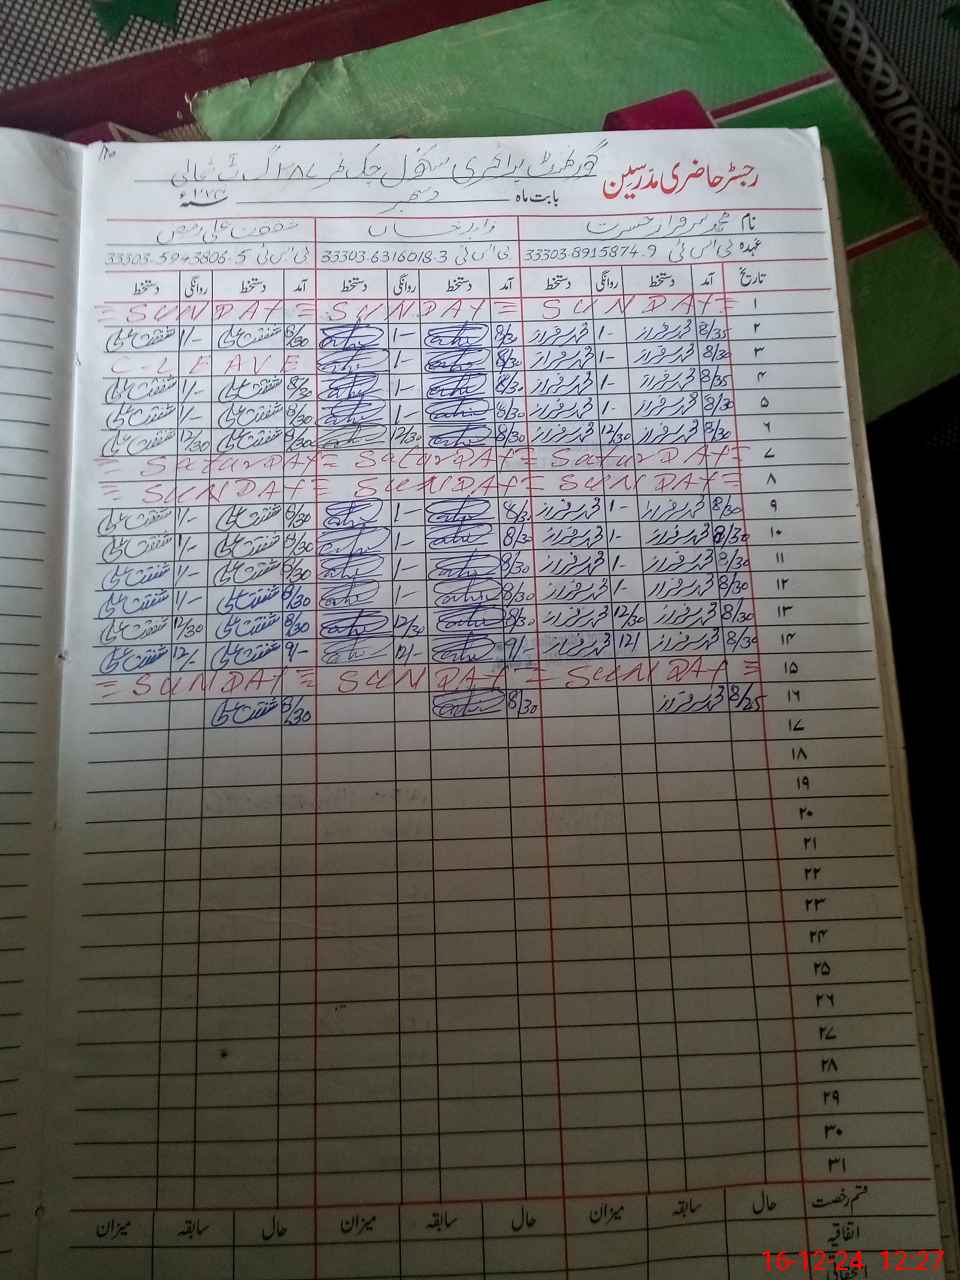 رجسٹر حاضری مدرسین گورنمنٹ پرائمری سکول چک نمبر
بابت ماہ دسمبر ۲۰۲۴ سنہ ء
نام محمد سرفراز حسرت زاہد خاں شفقت علی
عہدہ پی ایس ٹی 33303-8915874-9 پی ایس ٹی 33303-6316018-3 پی ایس ٹی 33303-5943806-5
تاریخ آمد دستخط روانگی دستخط آمد دستخط روانگی دستخط آمد دستخط روانگی دستخط
۱ = SUNDAY = SUNDAY = SUNDAY =
۲ 8/35 محمد سرفراز 1/- محمد سرفراز 8/30 1/- 8/30 شفقت علی 1/- شفقت علی
۳ 8/30 محمد سرفراز 1/- محمد سرفراز 8/30 1/- C-LEAVE
۴ 8/35 محمد سرفراز 1/- محمد سرفراز 8/30 1/- 8/30 شفقت علی 1/- شفقت علی
۵ 8/30 محمد سرفراز 1/- محمد سرفراز 8/30 1/- 8/30 شفقت علی 1/- شفقت علی
۶ 8/30 محمد سرفراز 12/30 محمد سرفراز 8/30 12/30 8/30 شفقت علی 12/30 شفقت علی
۷ = SaturDAY = SaturDAY = SaturDAY =
۸ = SUNDAY = SUNDAY = SUNDAY =
۹ 8/30 محمد سرفراز 1/- محمد سرفراز 8/30 1/- 8/30 شفقت علی 1/- شفقت علی
۱۰ 8/30 محمد سرفراز 1/- محمد سرفراز 8/30 1/- 8/30 شفقت علی 1/- شفقت علی
۱۱ 8/30 محمد سرفراز 1/- محمد سرفراز 8/30 1/- 8/30 شفقت علی 1/- شفقت علی
۱۲ 8/30 محمد سرفراز 1/- محمد سرفراز 8/30 1/- 8/30 شفقت علی 1/- شفقت علی
۱۳ 8/30 محمد سرفراز 12/30 محمد سرفراز 8/30 12/30 8/30 شفقت علی 12/30 شفقت علی
۱۴ 8/30 محمد سرفراز 12/ محمد سرفراز 9/- 12/- 9/- شفقت علی 12/- شفقت علی
۱۵ = SUNDAY = SUNDAY = SUNDAY =
۱۶ 8/25 محمد سرفراز 8/30 8/30 شفقت علی
۱۷
۱۸
۱۹
۲۰
۲۱
۲۲
۲۳
۲۴
۲۵
۲۶
۲۷
۲۸
۲۹
۳۰
۳۱
قسم رخصت حال سابقہ میزان حال سابقہ میزان حال سابقہ میزان
اتفاقیہ
16-12-24 12:27